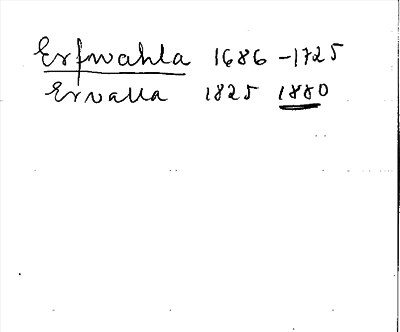 Erfwahla 1686-1725
Ervalla 1825 1880